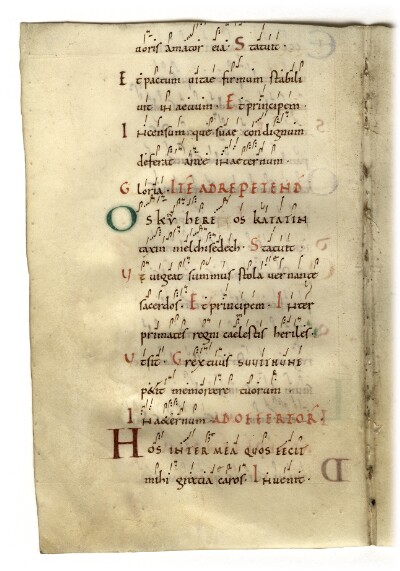 uoris amator eia. Statuit.
Et pactum uitae firmum stabili
uit in aeuum. Et principem.
Incensum que suae condignum
deferat arae inaeternum.
Gloria. ITE AD REPETEND
OSKY HERE OS KATATIN
taxin melchisedech. Statuit.
Vt uigeat summus stola uernante
sacerdos. Et principem. Inter
primates regni caelestis heriles.
Vt sit. Grex cuius
p&at memorare tuorum.
Inaeternum AD OFFERTOR.
HOS INTER MEA QUOS FECIT
mihi gratia caros. Inuenit.